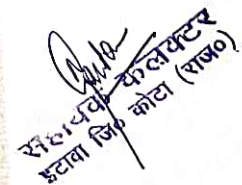 सहायक कलक्टर
इटावा जि० कोटा (राज०)